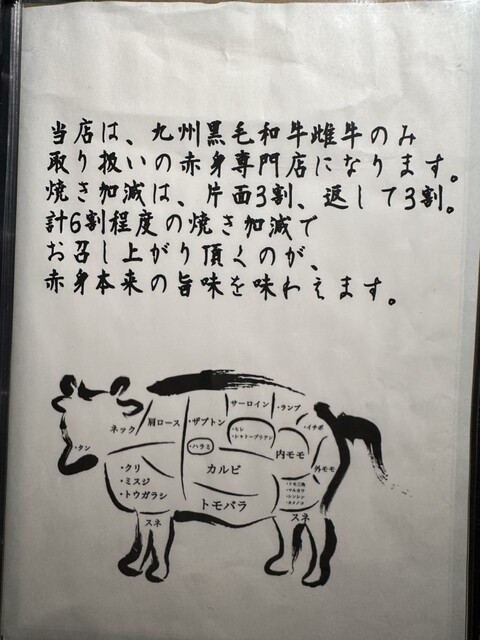 当店は、九州黒毛和牛雌牛のみ
取り扱いの赤身専門店になります。
焼き加減は、片面3割、返して3割。
計6割程度の焼き加減で
お召し上がり頂くのが、
赤身本来の旨味を味わえます。
サーロイン
・ランプ
ネック
肩ロース
・ザブトン
・ヒレ
・シャトーブリアン
・イチボ
・タン
・ハラミ
内モモ
・クリ
・ミスジ
・トウガラシ
カルビ
外モモ
・トモ三角
・マルカワ
・シンシン
・カメノコ
トモバラ
スネ
スネ